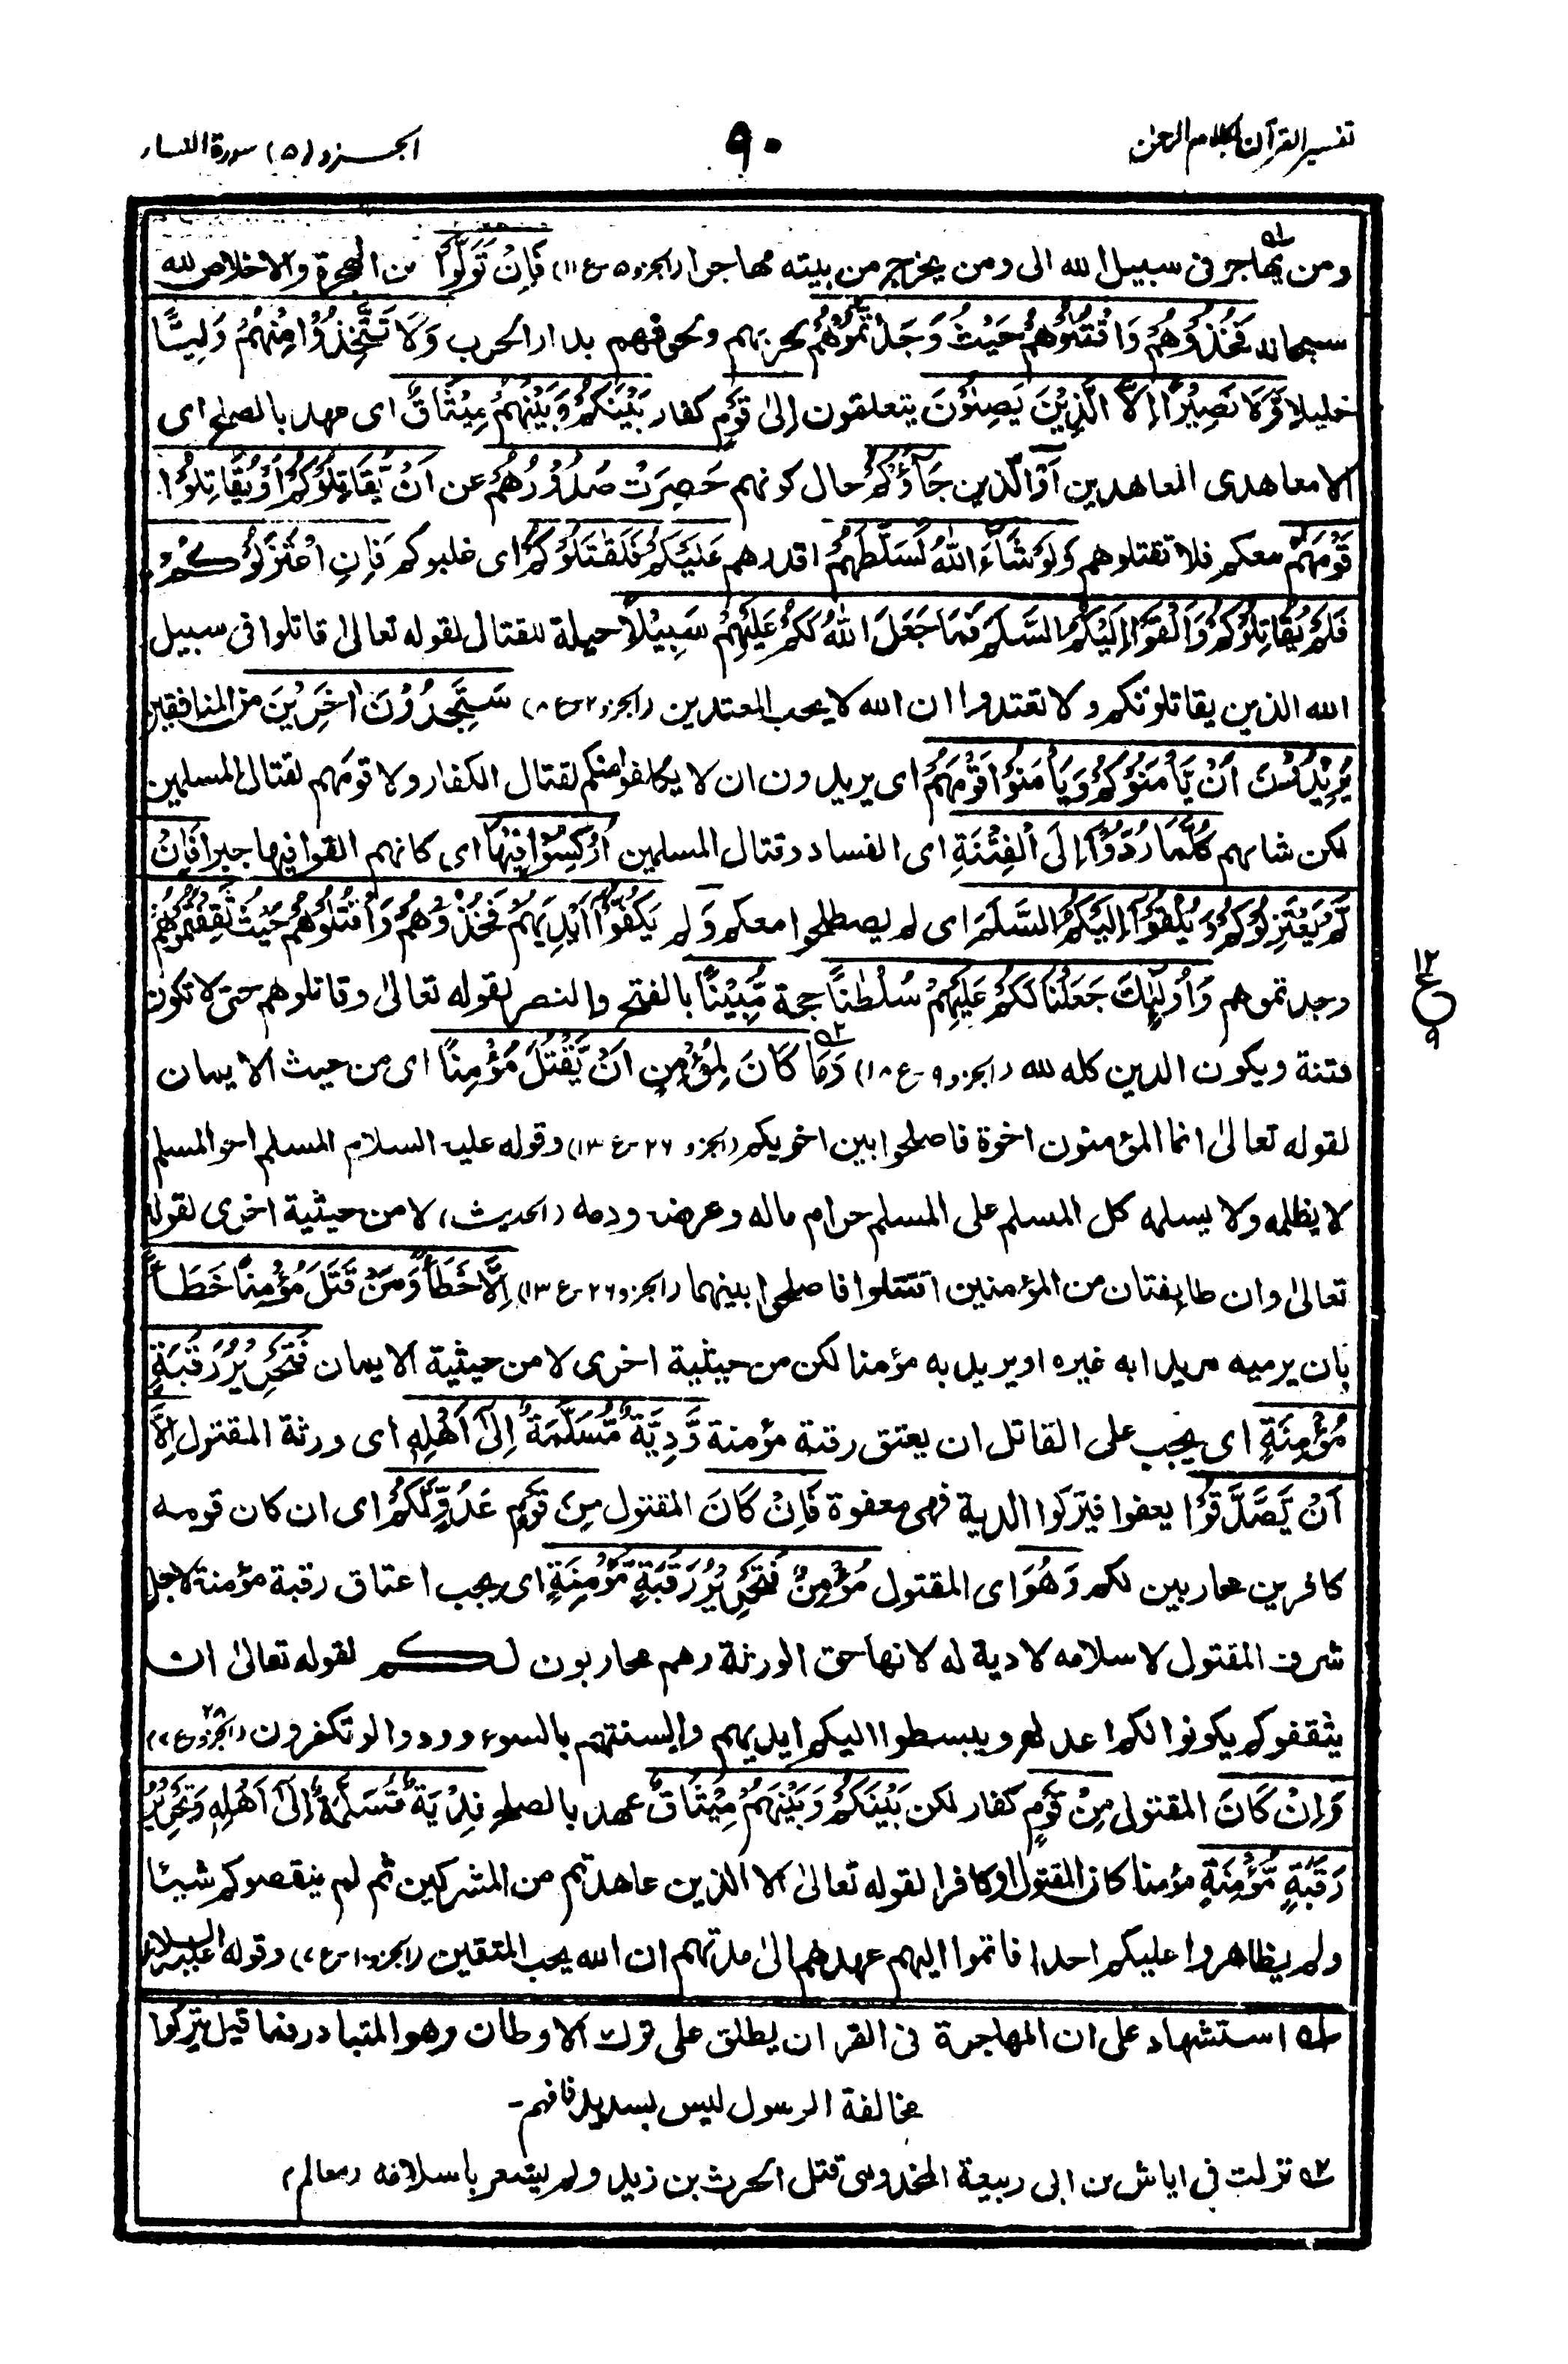 تفسير القرآن بكلام الرحمن
٩٠
الجزو (٥) سورة النساء
ومن يهاجر فى سبيل الله الى ومن يخرج من بيته مهاجرا (الجزو ٥-ع ١١) فَاِنْ تَوَلَّوْا من الهجرة والاخلاص لله
سبحانه فَخُذُوْهُمْ وَاقْتُلُوْهُمْ حَيْثُ وَجَدْتُّمُوْهُمْ بحربهم ولحوقهم بدار الحرب وَلَا تَتَّخِذُوْا مِنْهُمْ وَلِيًّا
خليلا وَّلَا نَصِيْرًا اِلَّا الَّذِيْنَ يَصِلُوْنَ يتعلقون اِلٰى قَوْمٍ كفار بَيْنَكُمْ وَبَيْنَهُمْ مِيْثَاقٌ اى عهد بالصلح اى
الا معاهدى المعاهدين اَوْ الّذين جَآؤُكُمْ حال كونهم حَصِرَتْ صُدُوْرُهُمْ عن اَنْ يُّقَاتِلُوْكُمْ اَوْ يُقَاتِلُوْا
قَوْمَهُمْ معكم فلا تقتلوهم وَلَوْ شَآءَ اللّٰهُ لَسَلَّطَهُمْ اقدرهم عَلَيْكُمْ فَلَقٰتَلُوْكُمْ اى غلبوكم فَاِنِ اعْتَزَلُوْكُمْ
فَلَمْ يُقَاتِلُوْكُمْ وَاَلْقَوْا اِلَيْكُمُ السَّلَمَ فَمَا جَعَلَ اللّٰهُ لَكُمْ عَلَيْهِمْ سَبِيْلًا حيلة للقتال لقوله تعالىٰ قاتلوا فى سبيل
الله الذين يقاتلونكم ولا تعتدوا ان الله لا يحب المعتدين (الجزو ٢-ع ٨) سَتَجِدُوْنَ اٰخَرِيْنَ من المنافقين
يُرِيْدُوْنَ اَنْ يَّاْمَنُوْكُمْ وَيَاْمَنُوْا قَوْمَهُمْ اى يريدون ان لا يخالفوا منكم لقتال الكفار ولا قومهم لقتال المسلمين
لكن شانهم كُلَّمَا رُدُّوْٓا اِلَى الْفِتْنَةِ اى الفساد وقتال المسلمين اُرْكِسُوْا فِيْهَا اى كانهم القوا فيها جبرا فَاِنْ
لَّمْ يَعْتَزِلُوْكُمْ وَيُلْقُوْٓا اِلَيْكُمُ السَّلَمَ اى لم يصطلحوا معكم وَ لم يَكُفُّوْٓا اَيْدِيَهُمْ فَخُذُوْهُمْ وَاقْتُلُوْهُمْ حَيْثُ ثَقِفْتُمُوْهُمْ
وجدتموهم وَاُولٰٓئِكَ جَعَلْنَا لَكُمْ عَلَيْهِمْ سُلْطٰنًا حجة مُّبِيْنًا بالفتح والنصر لقوله تعالىٰ وقاتلوهم حتى لا تكون
١٢
ع
٩
فتنة ويكون الدين كله لله (الجزو ٩-ع ١٨) وَمَا كَانَ لِمُؤْمِنٍ اَنْ يَّقْتُلَ مُؤْمِنًا اى من حيث الايمان
لقوله تعالىٰ انما المؤمنون اخوة فاصلحوا بين اخويكم (الجزو ٢٦-ع ١٣) وقوله عليه السلام المسلم اخو المسلم
لا يظلمه ولا يسلمه كل المسلم على المسلم حرام ماله وعرضه ودمه (الحديث) لا من حيثية اخرى لقوله
تعالىٰ وان طايفتان من المؤمنين اقتتلوا فاصلحوا بينهما (الجزو ٢٦-ع ١٣) اِلَّا خَطَأً وَمَنْ قَتَلَ مُؤْمِنًا خَطَأً
بان يرميه مريدا به غيره او يريد به مؤمنا لكن من حيثية اخرى لا من حيثية الايمان فَتَحْرِيْرُ رَقَبَةٍ
مُّؤْمِنَةٍ اى يجب على القاتل ان يعتق رقبة مؤمنة وَّدِيَةٌ مُّسَلَّمَةٌ اِلٰٓى اَهْلِهٖ اى ورثة المقتول اِلَّآ
اَنْ يَّصَّدَّقُوْا يعفوا فيتركوا الدية فهى معفوة فَاِنْ كَانَ المقتول مِنْ قَوْمٍ عَدُوٍّ لَّكُمْ اى ان كان قومه
كافرين محاربين لكم وَهُوَ اى المقتول مُؤْمِنٌ فَتَحْرِيْرُ رَقَبَةٍ مُّؤْمِنَةٍ اى يجب اعتاق رقبة مؤمنة لاجل
شرف المقتول لاسلامه لا دية له لانها حق الورثة وهم محاربون لكم لقوله تعالىٰ ان
يثقفوكم يكونوا لكم اعداء ويبسطوا اليكم ايديهم والسنتهم بالسوء وودوا لو تكفرون (الجزو ٢٨ ع ٧)
وَاِنْ كَانَ المقتول مِنْ قَوْمٍ كفار لكن بَيْنَكُمْ وَبَيْنَهُمْ مِيْثَاقٌ عهد بالصلح فَدِيَةٌ مُّسَلَّمَةٌ اِلٰٓى اَهْلِهٖ وَتَحْرِيْرُ
رَقَبَةٍ مُّؤْمِنَةٍ مؤمنا كان المقتول او كافرا لقوله تعالىٰ الا الذين عاهدتم من المشركين ثم لم ينقصوكم شيئا
ولم يظاهروا عليكم احدا فاتموا اليهم عهدهم الىٰ مدتهم ان الله يحب المتقين (الجزو ١٠-ع ٧) وقوله عليه السلام
١ه استشهاد على ان المهاجرة فى القران يطلق على ترك الاوطان وهو المتبادر فما قيل يتركوا
مخالفة الرسول ليس بسديد فافهم-
٢ه نزلت فى اياش بن ابى ربيعة المخدومى قتل الحرث بن زيد ولم يشعر باسلامه (معالم)